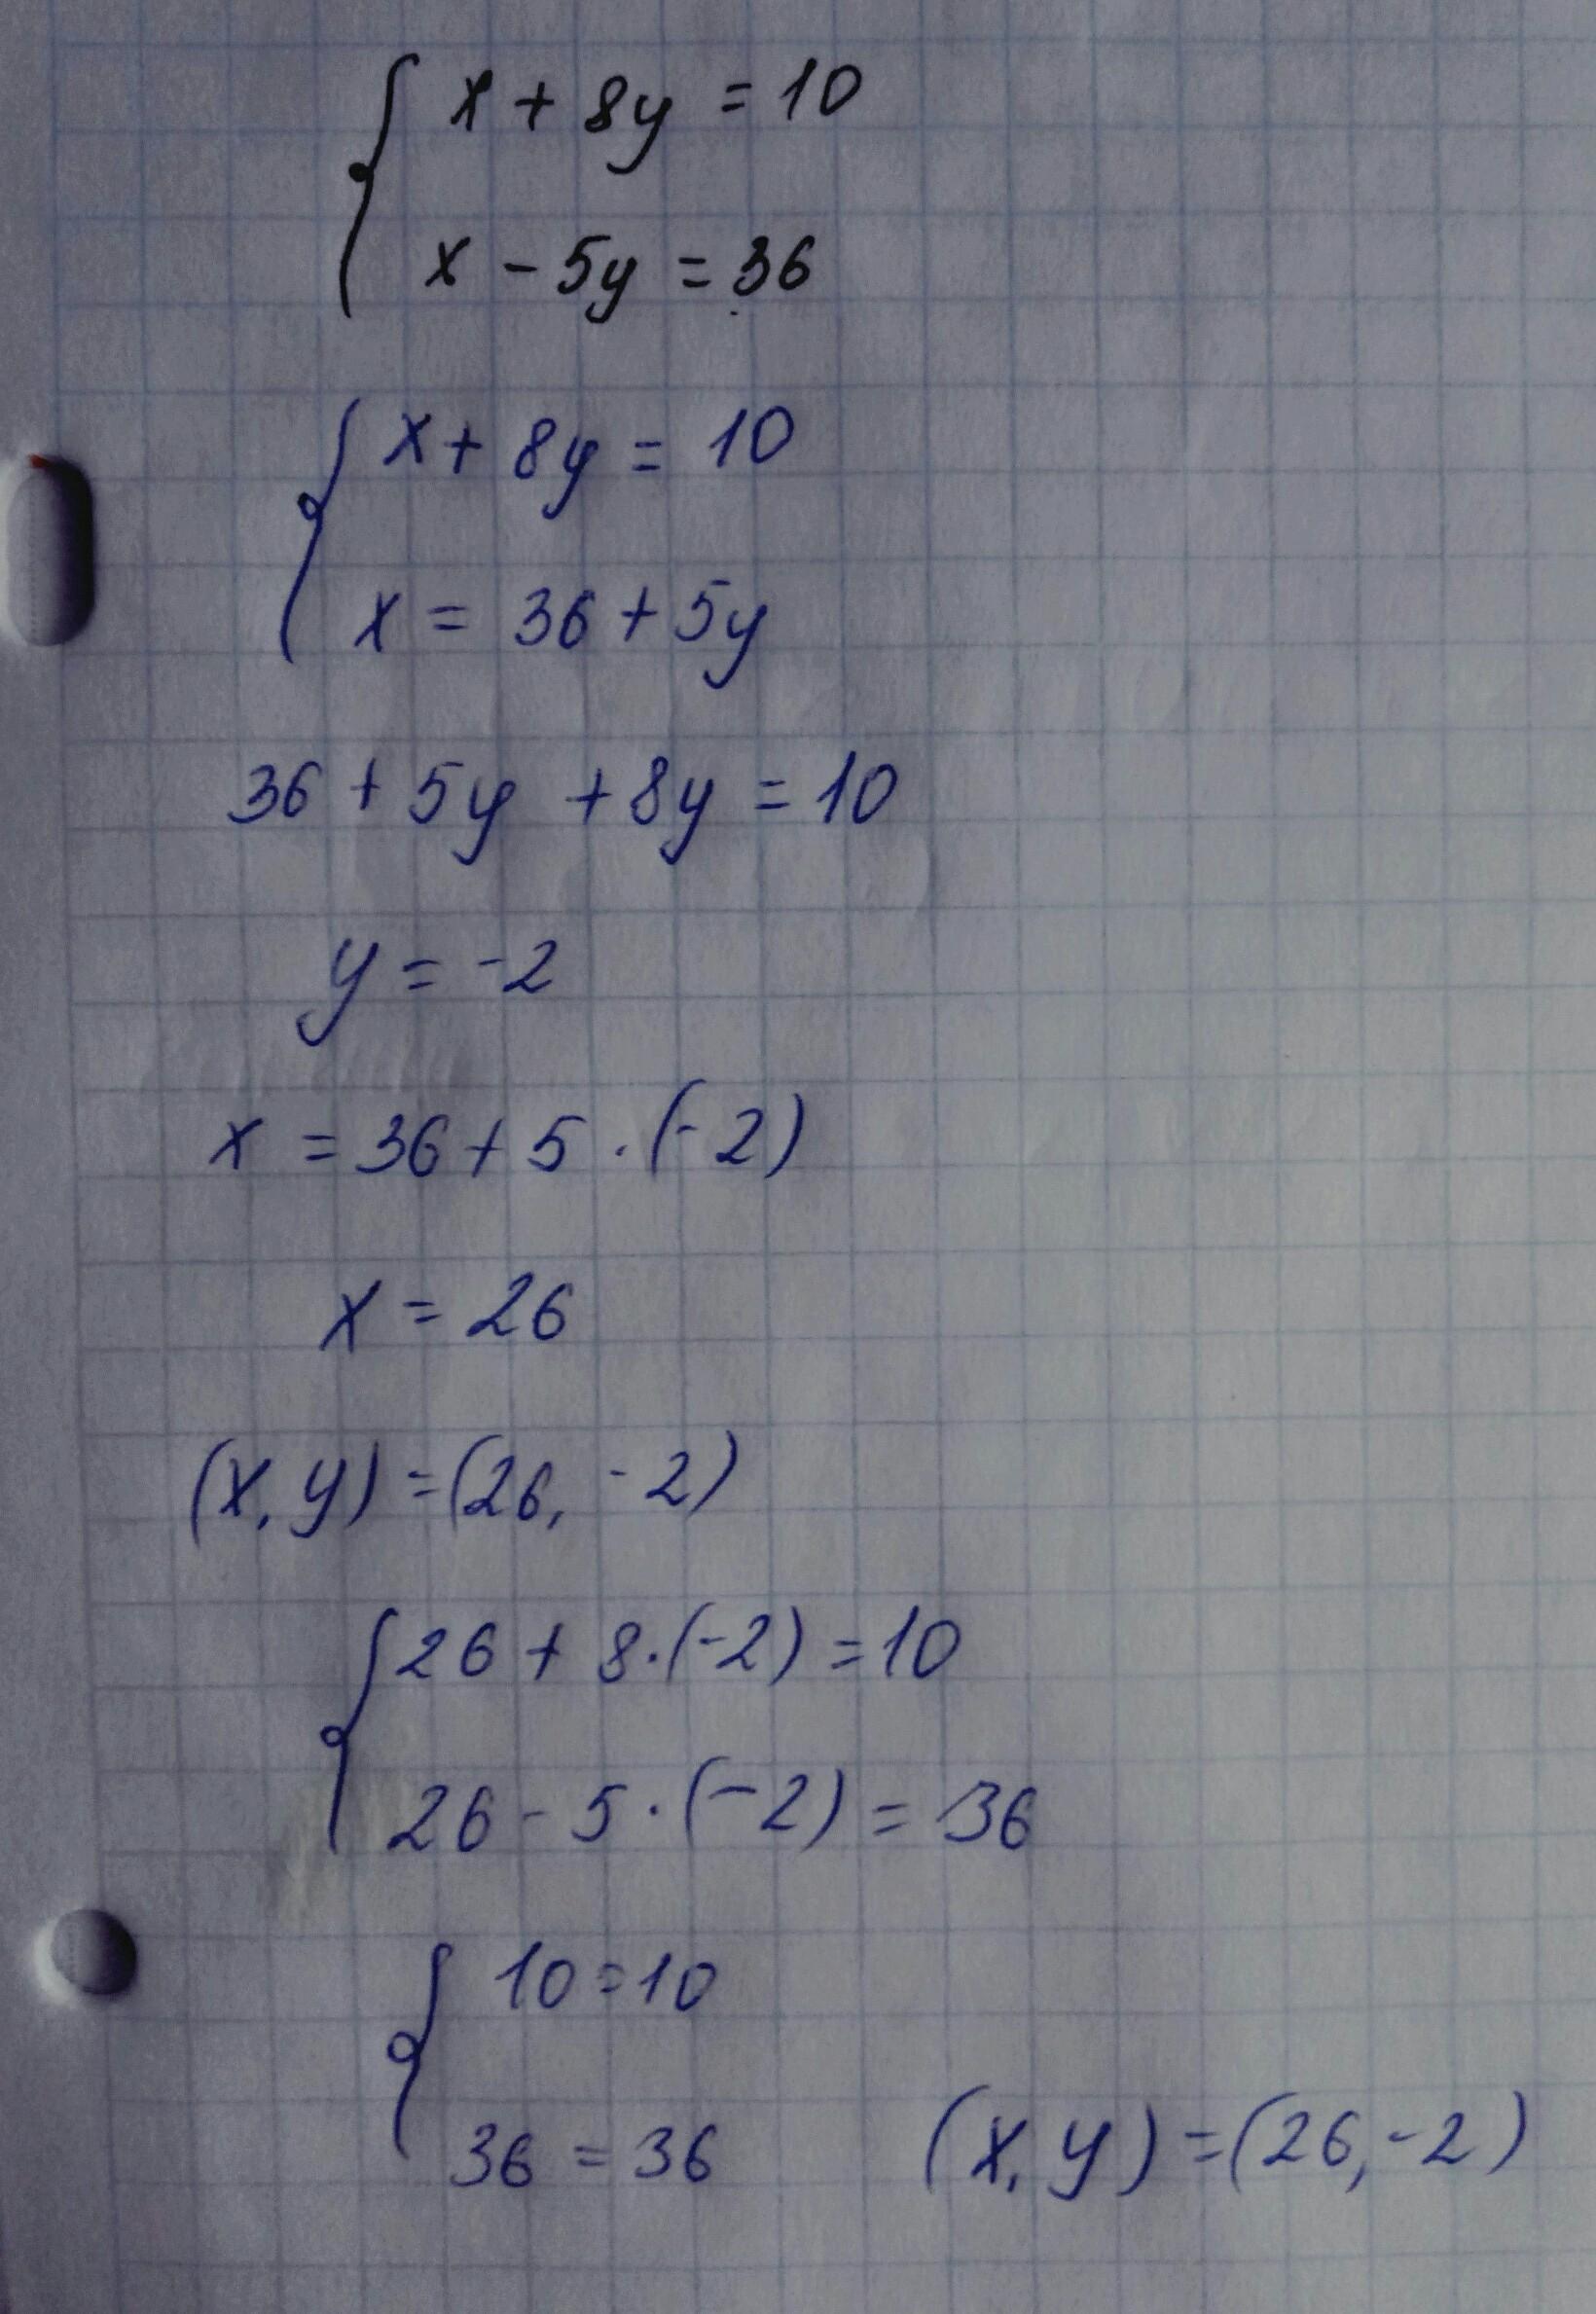 x + 8y = 10
x - 5y = 36
x + 8y = 10
x = 36 + 5y
36 + 5y + 8y = 10
y = -2
x = 36 + 5 · (-2)
x = 26
(x, y) = (26, -2)
26 + 8 · (-2) = 10
26 - 5 · (-2) = 36
10 = 10
36 = 36 (x, y) = (26, -2)